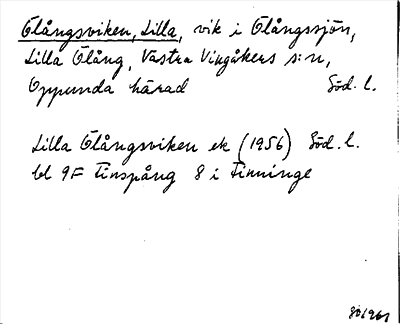 Ölångsviken, Lilla, vik i Ölångssjön,
Lilla Ölång, Västra Vingåkers s:n,
Oppunda härad Söd. l.
Lilla Ölångsviken ek (1956) Söd. l.
bl 9F Finspång 8 i Finninge